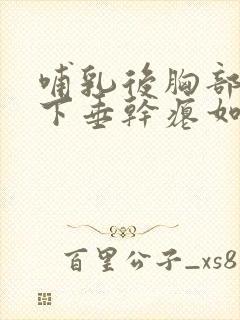 哺乳後胸部
下垂幹癟如
百里公子_xs8